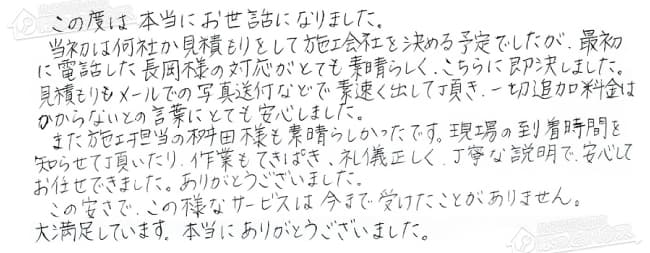 この度は本当にお世話になりました。
当初は何社か見積もりをして施工会社を決める予定でしたが、最初
に電話した長岡様の対応がとても素晴らしく、こちらに即決しました。
見積もりもメールでの写真送付などで素速く出して頂き、一切追加料金は
かからないとの言葉にとても安心しました。
また施工担当の桝田様も素晴らしかったです。現場の到着時間を
知らせて頂いたり、作業もてきぱき、礼儀正しく、丁寧な説明で、安心して
お任せできました。ありがとうございました。
この安さで、この様なサービスは今まで受けたことがありません。
大満足しています。本当にありがとうございました。